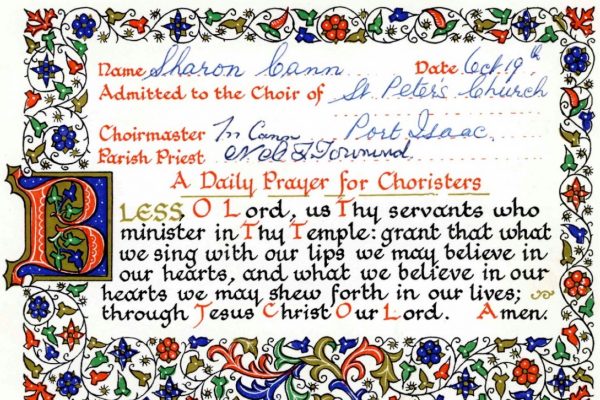 Name Sharon Cann Date Oct 19th
Admitted to the Choir of St Peter's Church
Port Isaac.
Choirmaster M Cann
Parish Priest
A Daily Prayer for Choristers
BLESS, O Lord, us Thy servants who
minister in Thy Temple: grant that what
we sing with our lips we may believe in
our hearts, and what we believe in our
hearts we may shew forth in our lives;
through Jesus Christ Our Lord. Amen.